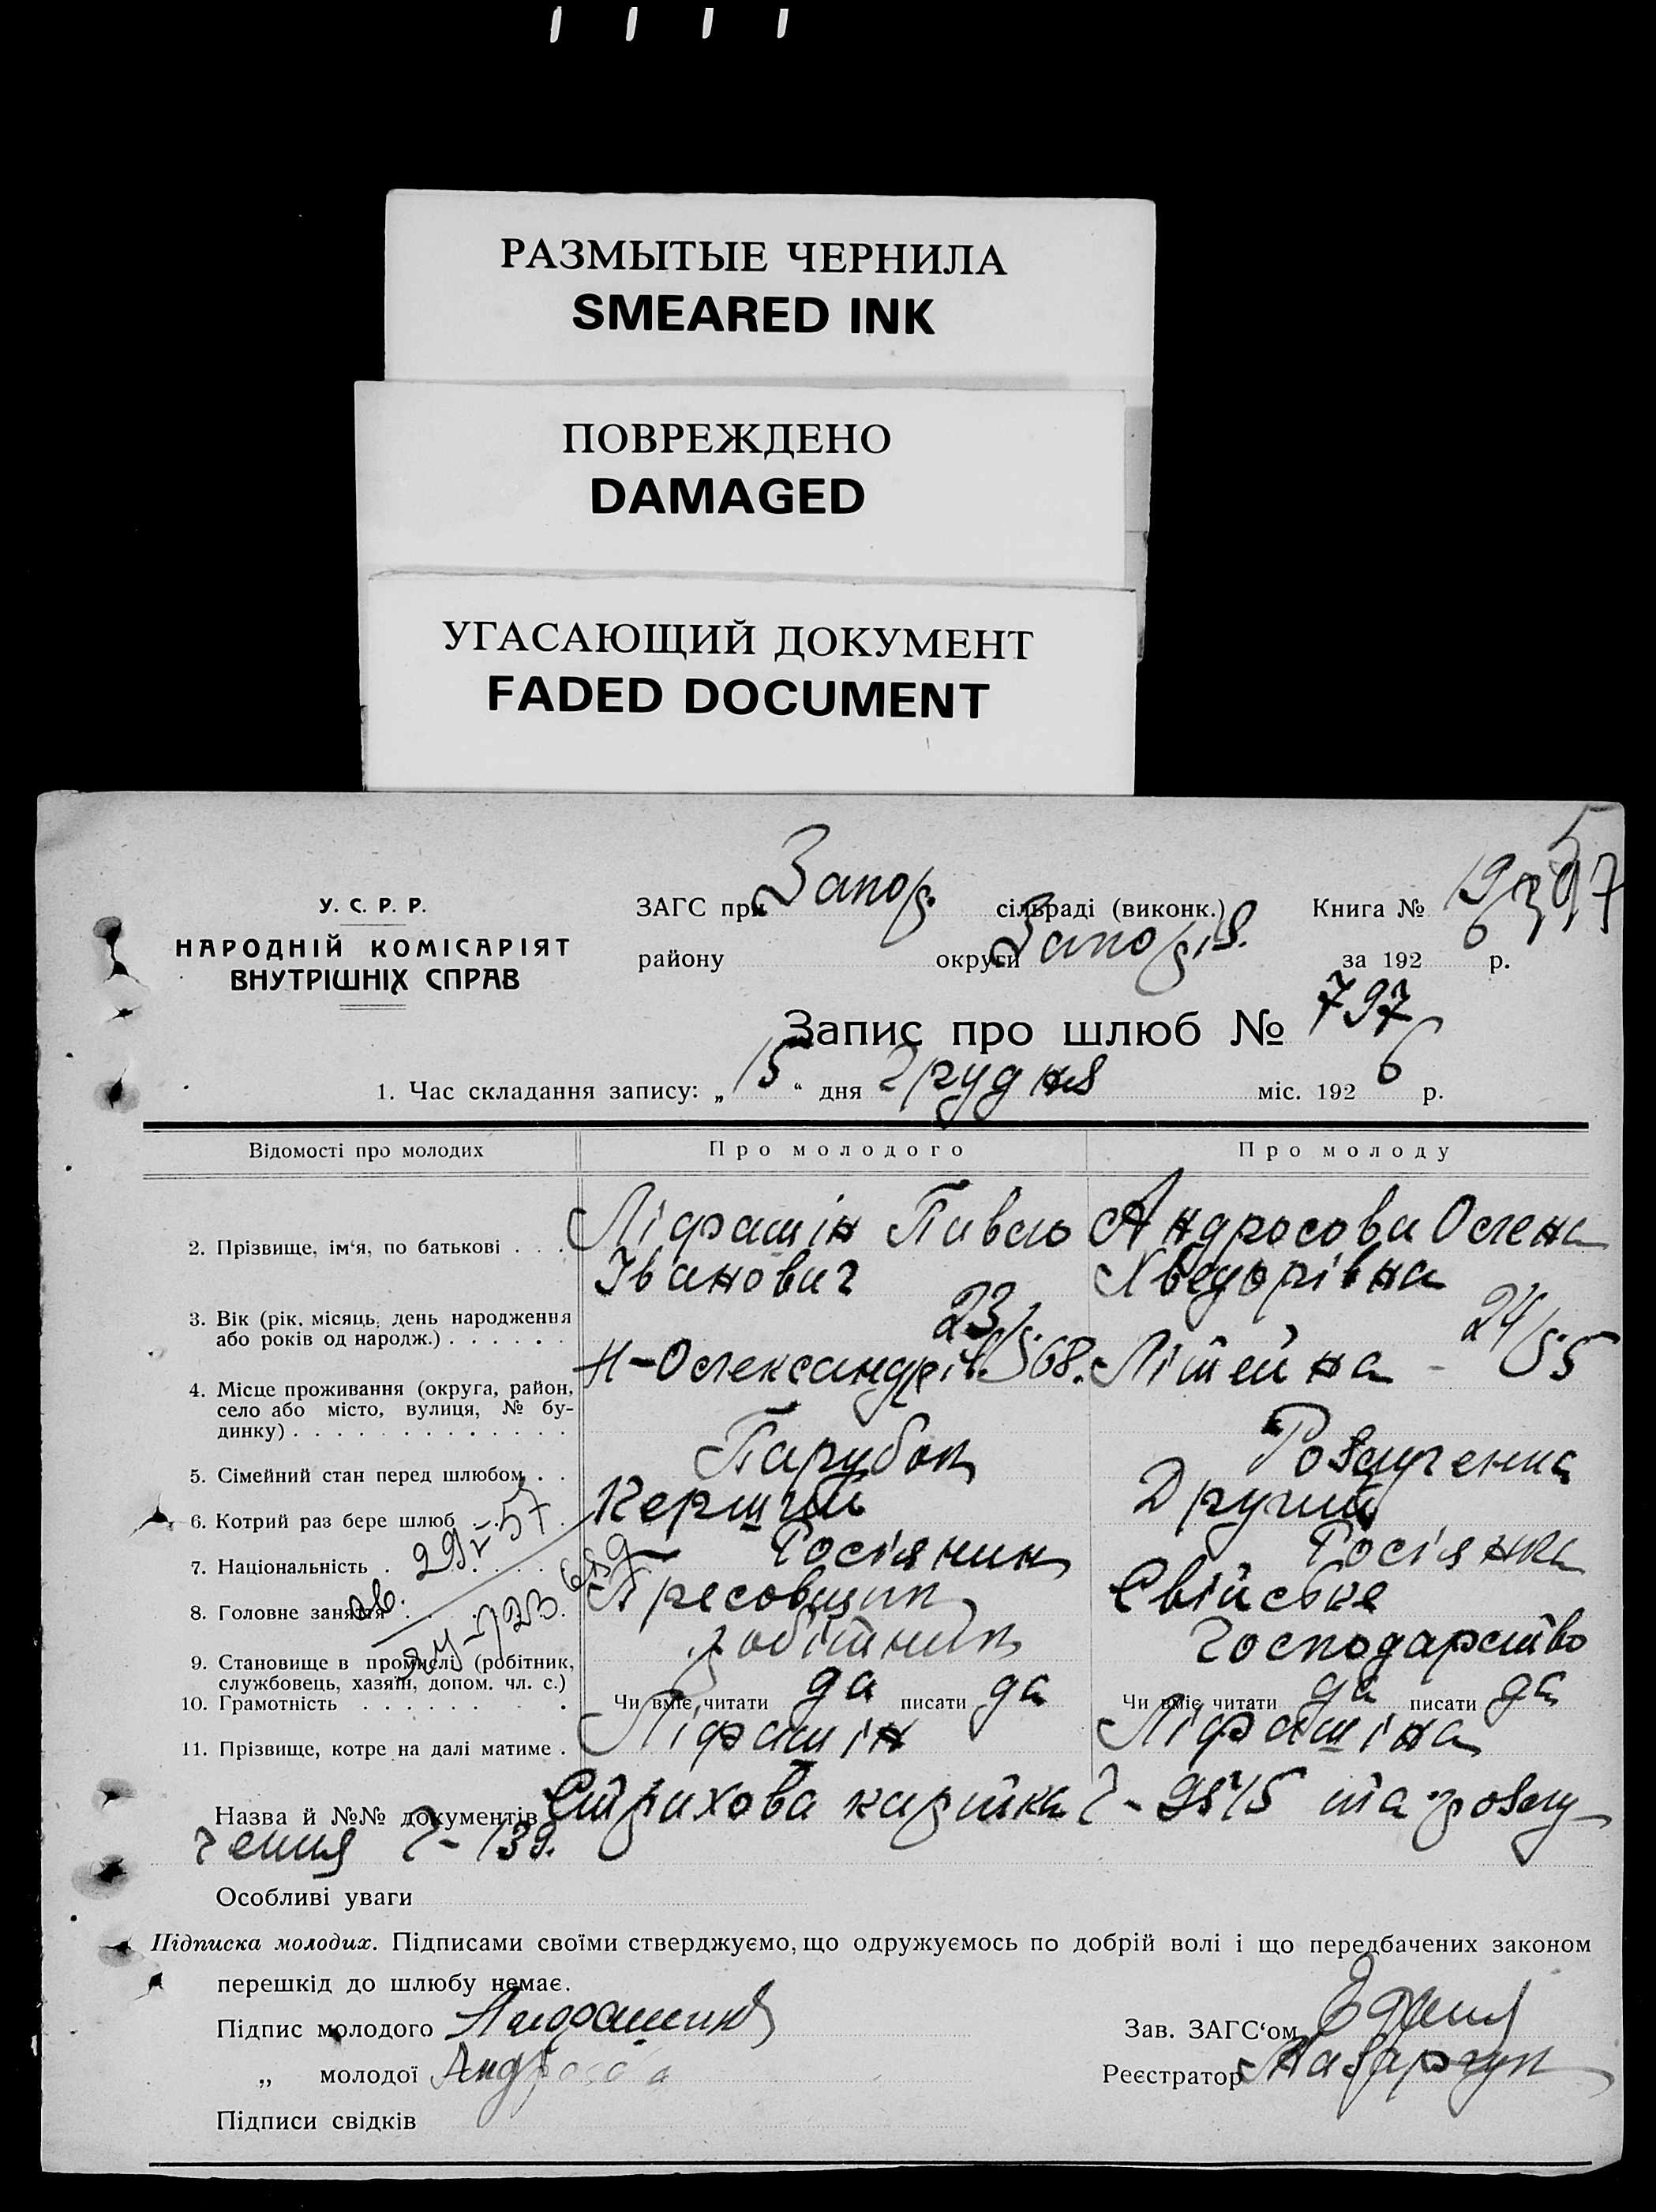 РАЗМЫТЫЕ ЧЕРНИЛА
SMEARED INK
ПОВРЕЖДЕНО
DAMAGED
УГАСАЮЩИЙ ДОКУМЕНТ
FADED DOCUMENT
У. С. Р. Р.
НАРОДНІЙ КОМІСАРІЯТ
ВНУТРІШНІХ СПРАВ
ЗАГС при Запор. сільраді (виконк.) Книга №
району округи Запоріз. за 1926 р.
Запис про шлюб № 797
1. Час складання запису: „15“ дня Грудня міс. 1926 р.
Відомості про молодих Про молодого Про молоду
2. Прізвище, ім‘я, по батькові . . . Лідрашін Павло Андросова Олена
Іванович Хведорівна
3. Вік (рік, місяць, день народження 23 24
або років од народж.) . . . . . .
4. Місце проживання (округа, район, Н-Олександрів. 68. Літейна - 55
село або місто, вулиця, № бу-
динку) . . . . . . . . . . . . .
5. Сімейний стан перед шлюбом . . Парубок Розлученна
6. Котрий раз бере шлюб . . . . Перший Другий
7. Національність . . . . . . Росіянин Росіянка
8. Головне заняття . . . . . Пресовщик Свійське
9. Становище в промислі (робітник, робітник господарство
службовець, хазяїн, допом. чл. с.)
10. Грамотність . . . . . . . Чи вміє читати да писати да Чи вміє читати да писати да
11. Прізвище, котре на далі матиме . Лідрашін Лідрашіна
Назва й №№ документів Страхова картка Ч- та розлу-
чення Ч-139.
Особливі уваги
Підписка молодих. Підписами своїми стверджуємо, що одружуємось по добрій волі і що передбачених законом
перешкід до шлюбу немає.
Підпис молодого Зав. ЗАГС‘ом
„ молодої Андросова Реєстратор Назарчук
Підписи свідків